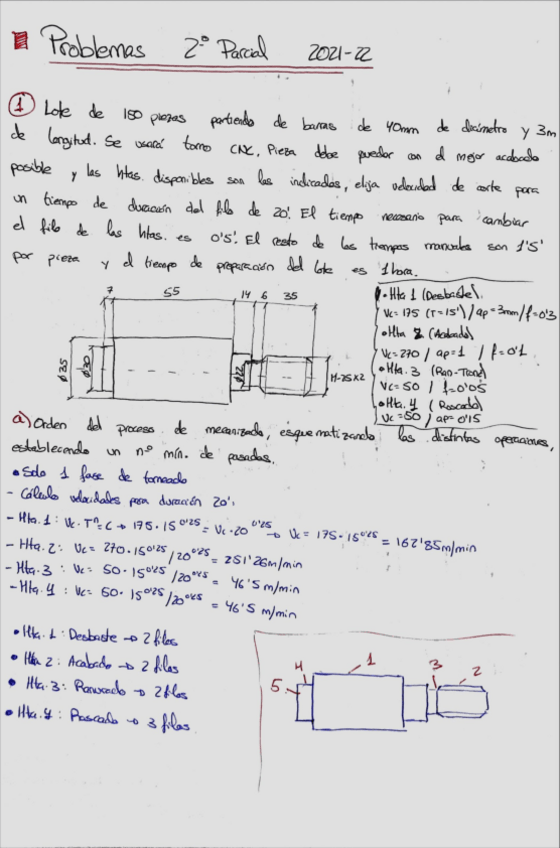 Problemas 2º Parcial 2021-22
① Lote de 150 piezas partiendo de barras de 40mm de diámetro y 3m
de longitud. Se usará torno CNC. Pieza debe quedar con el mejor acabado
posible y las htas. disponibles son las indicadas, elija velocidad de corte para
un tiempo de duración del filo de 20'. El tiempo necesario para cambiar
el filo de las htas. es 0'5'. El resto de los tiempos manuales son 1'5'
por pieza y el tiempo de preparación del lote es 1 hora.
7 55 14 6 35
ø35 ø30 ø22 M-25x2
• Hta 1 (Desbaste).
Vc = 175 (T=15') / ap = 3mm / f=0'3
• Hta 2 (Acabado)
Vc = 270 / ap=1 / f=0'1
• Hta. 3 (Ran-Tronz)
Vc = 50 / f=0'05
• Hta. 4 (Roscado)
Vc = 50 / ap=0'15
a) Orden del proceso de mecanizado, esquematizando las distintas operaciones,
estableciendo un nº mín. de pasadas.
• Solo 1 fase de torneado
- Cálculo velocidades para duración 20':
- Hta. 1: Vc·Tⁿ = C → 175·15^0'25 = Vc·20^0'25 → Vc = 175·15^0'25 = 162'85 m/min
- Hta. 2: Vc = 270·15^0'25/20^0'25 = 251'26 m/min
- Hta. 3: Vc = 50·15^0'25/20^0'25 = 46'5 m/min
- Hta. 4: Vc = 50·15^0'25/20^0'25 = 46'5 m/min
• Hta. 1: Desbaste → 2 filos
• Hta 2: Acabado → 2 filos
• Hta. 3: Ranurado → 2 filos
• Hta. 4: Roscado → 3 filos.
5 4 1 3 2